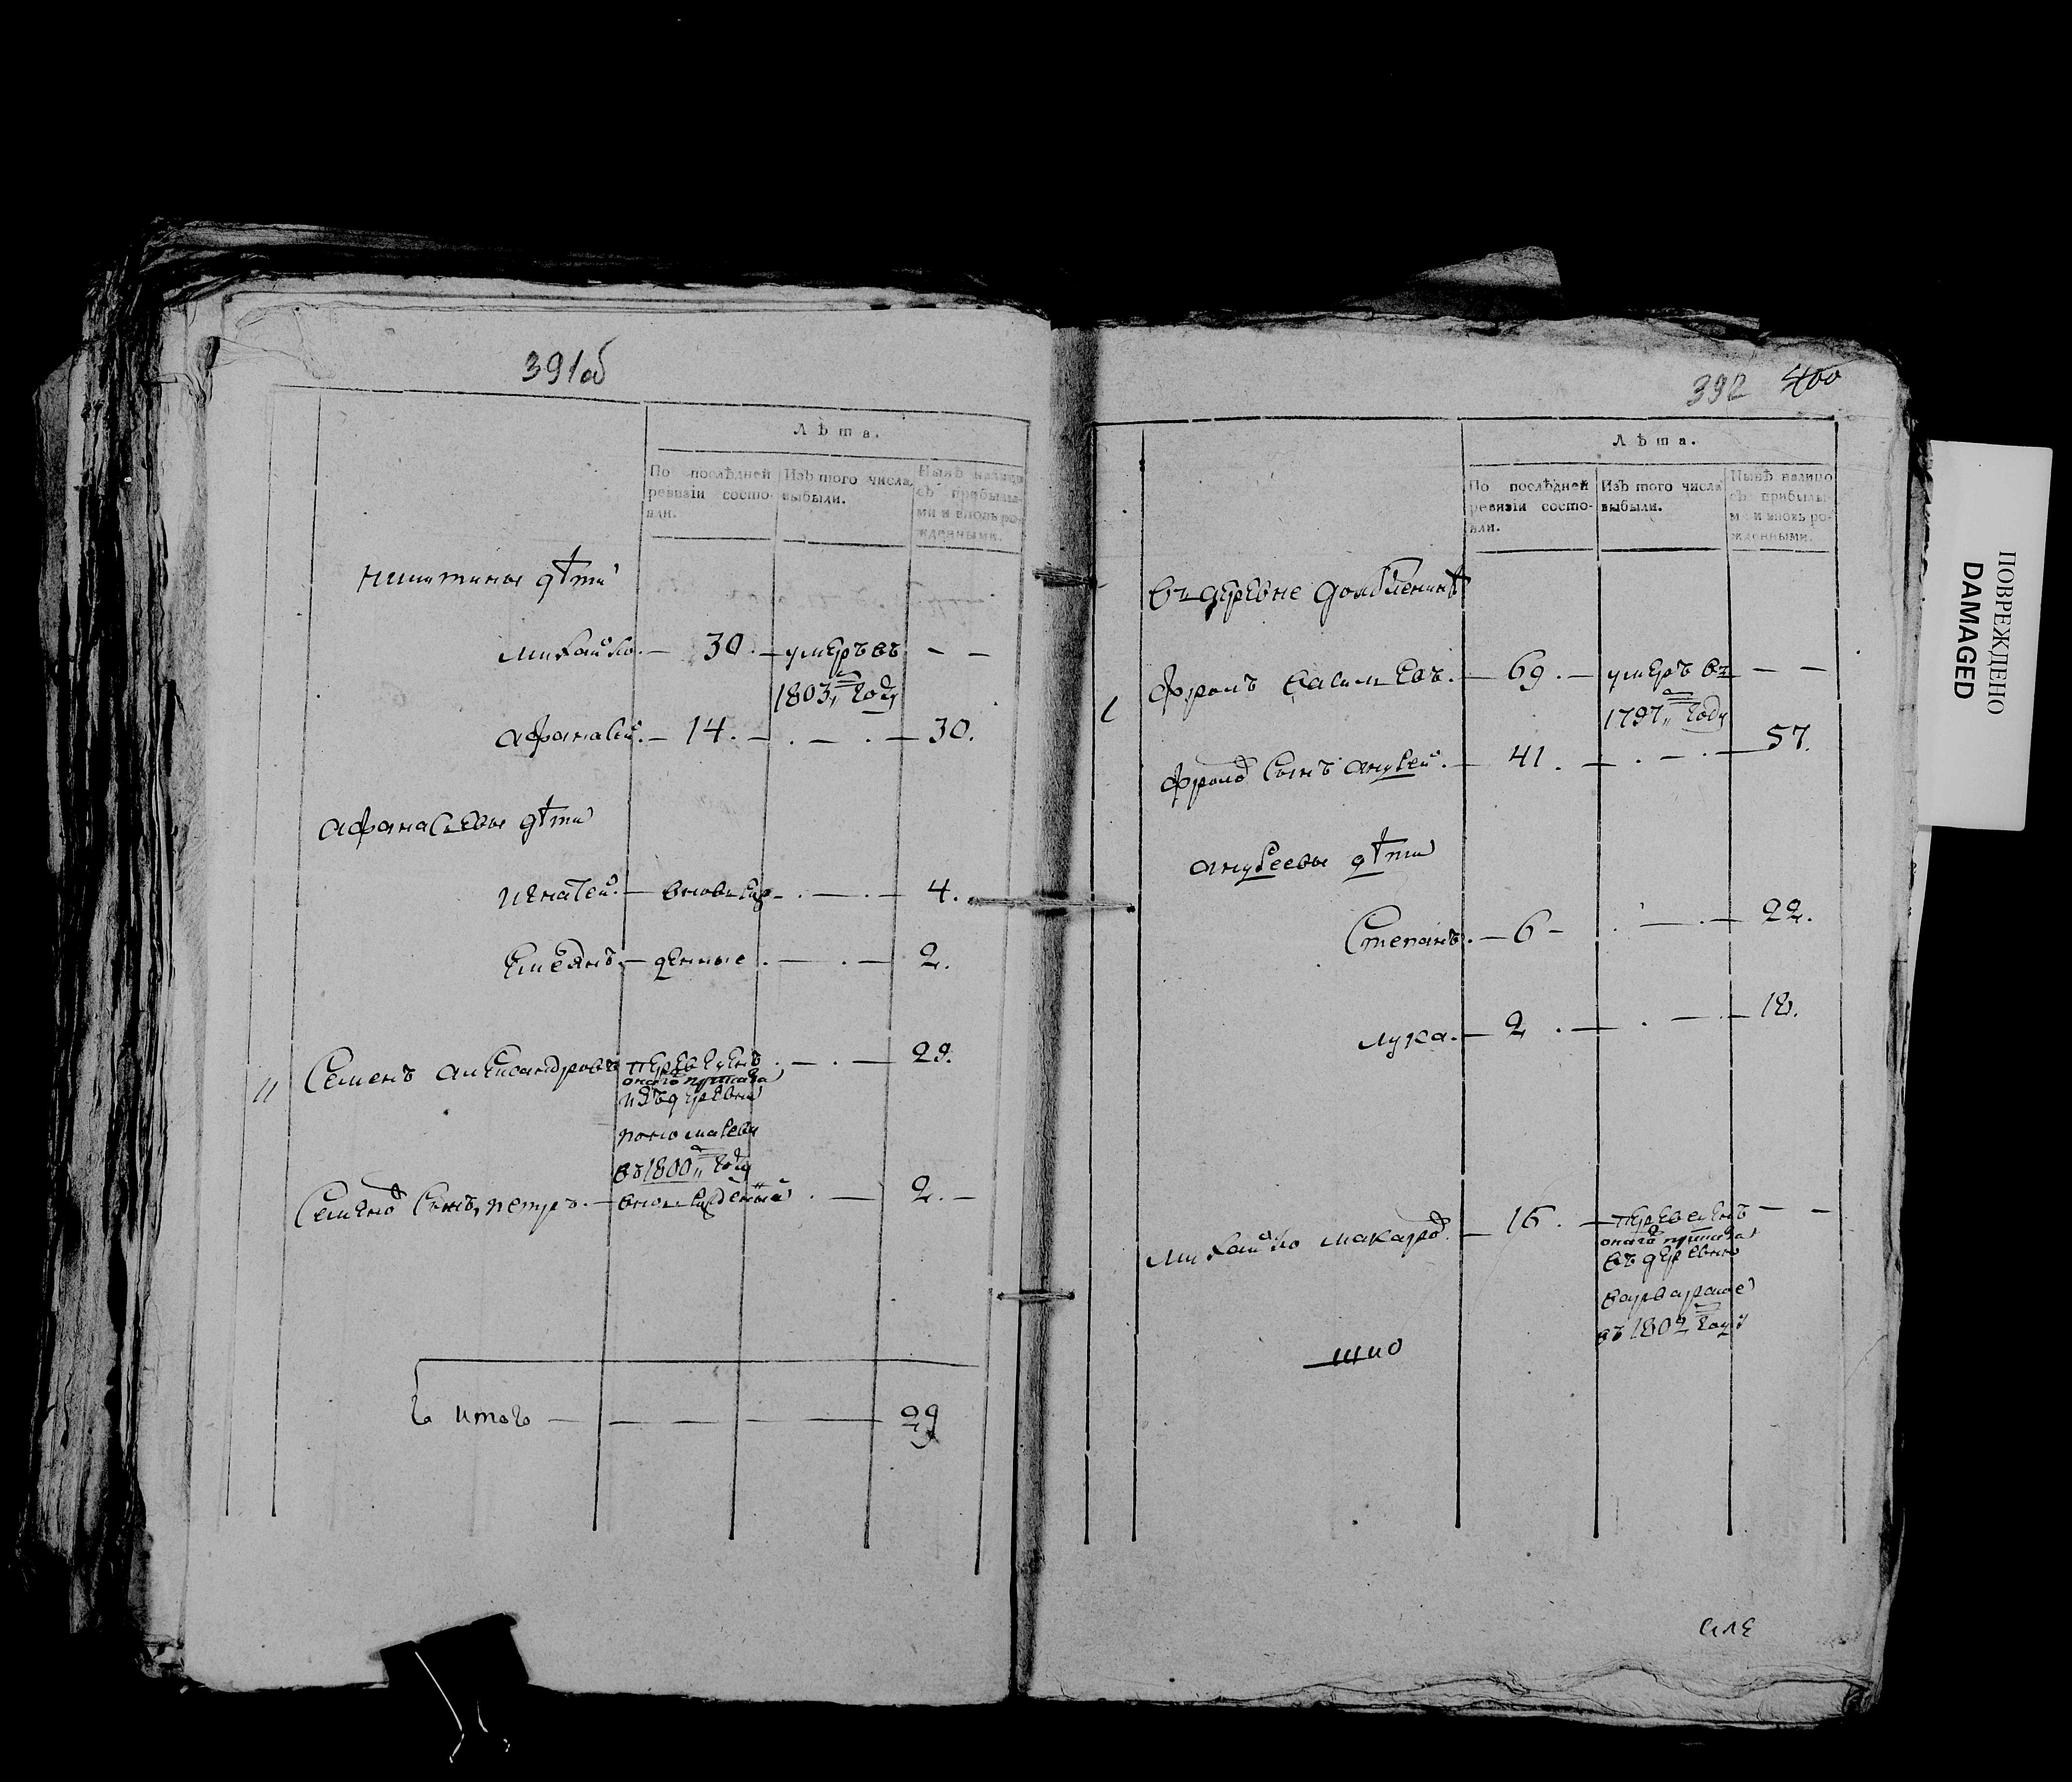 391об
Лѣта.
По послѣдней ревизіи состояли.
Изъ того числа выбыли.
Нынѣ налицо съ прибылыми и вновь рожденными.
никитины дѣти
михайло — 30 — умеръ въ — —
1803 году
афонасей — 14. — . — . — 30.
афонасьевы дѣти
игнатей — вновь рож — . — . — 4.
емельянъ — денные . — . — 2.
11 Семенъ александровъ переведенъ . — . — 29.
оного
изъ деревни
въ 1800 году
Семенов сынъ петръ. — вновь рожденный . — 2. —
итого — — — — — 29
392 400
Лѣта.
По послѣдней ревизіи состояли.
Изъ того числа выбыли.
Нынѣ налицо съ прибылыми и вновь рожденными.
въ деревне
1 фролъ васильевъ. — 69. — умеръ въ — —
1797 году
фролов сынъ андрей. — 41. — . — . — 57.
андреевы дѣти
Степанъ. — 6 — . — . — 22.
лука. — 2 . — . — . — 18.
михайло макаров. — 16. — переведенъ — —
оного
въ деревню
въ 1802 году
ПОВРЕЖДЕНО
DAMAGED